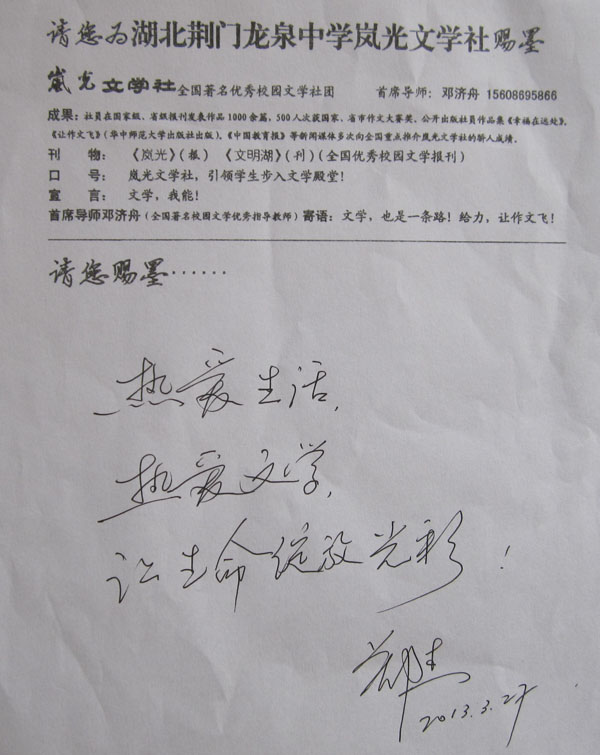 请您为湖北荆门龙泉中学岚光文学社赐墨
岚光文学社全国著名优秀校园文学社团 首席导师：邓济舟 15608695866
成果：社员在国家级、省级报刊发表作品1000余篇，500人次获国家、省市作文大赛奖。公开出版社员作品集《幸福在远处》、
《让作文飞》（华中师范大学出版社出版）。《中国教育报》等新闻媒体多次向全国重点推介岚光文学社的骄人成绩。
刊 物：《岚光》（报）《文明湖》（刊）（全国优秀校园文学报刊）
口 号：岚光文学社，引领学生步入文学殿堂！
宣 言：文学，我能！
首席导师邓济舟（全国著名校园文学优秀指导教师）寄语：文学，也是一条路！给力，让作文飞！
请您赐墨……
热爱生活，
热爱文学，
让生命绽放光彩！
2013.3.27